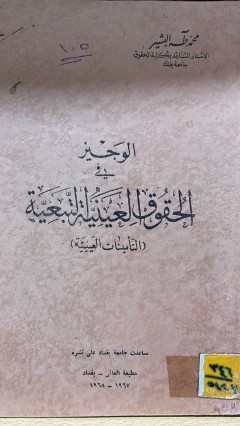 ١٠٥
محمد طه البشير
الاستاذ المساعد بكلية الحقوق
جامعة بغداد
الوجيز
في
الحقوق العينية التبعية
(التأمينات العينية)
ساعدت جامعة بغداد على نشره
مطبعة العاني - بغداد
١٩٦٧ - ١٩٦٨